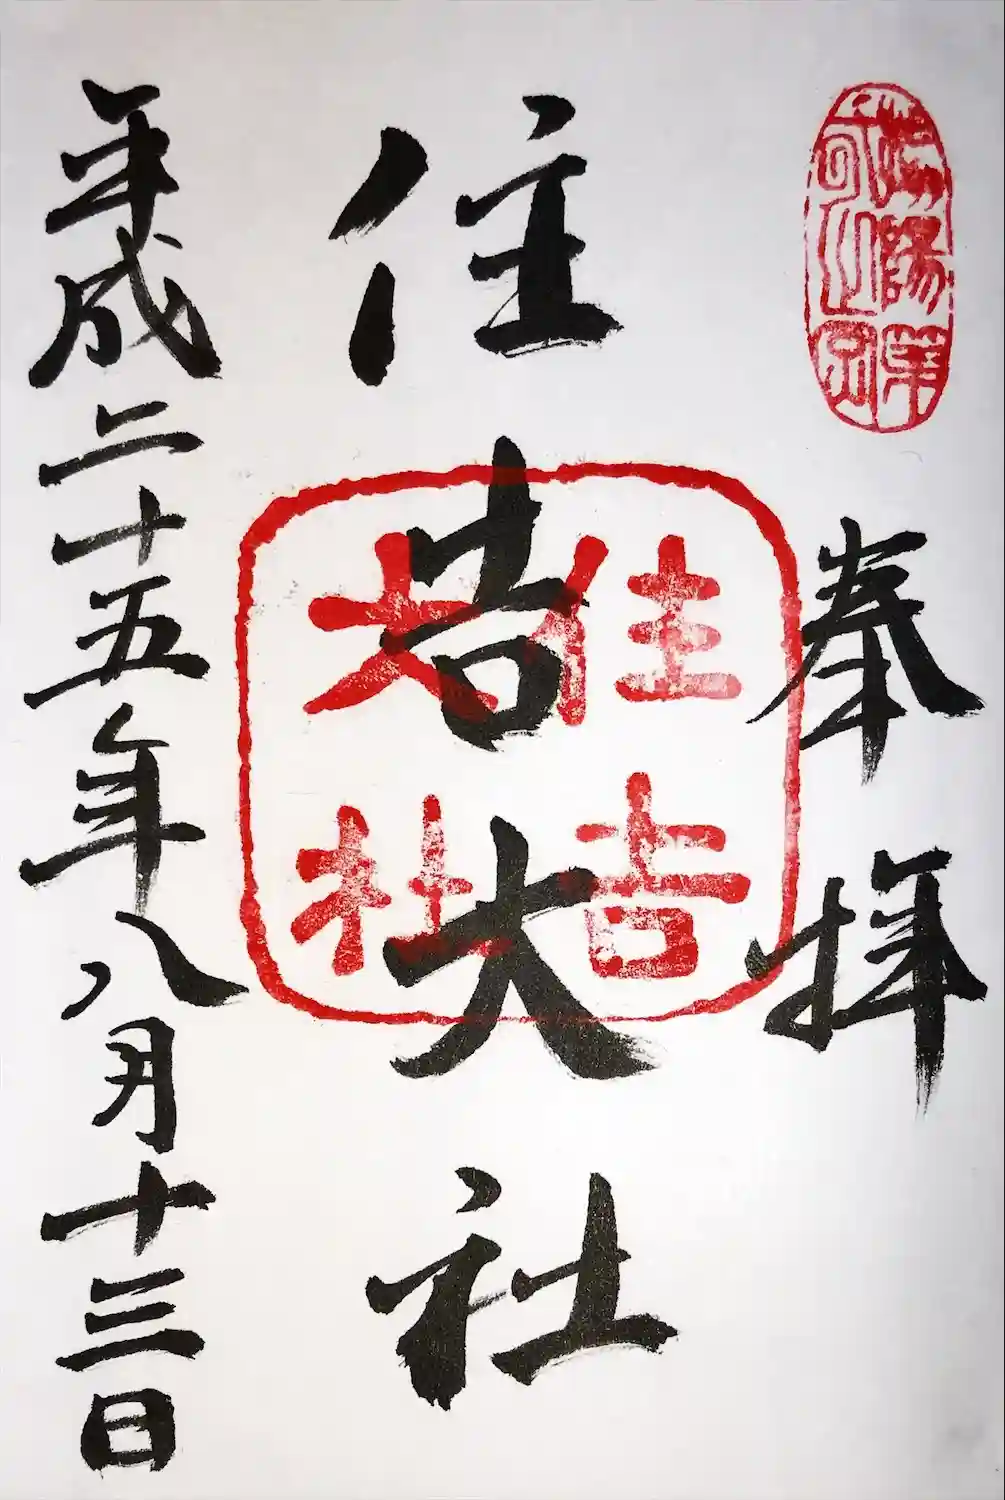 奉拝
住吉大社
住吉
大社
平成二十五年八月十三日